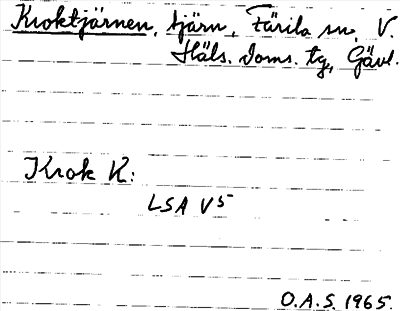 Kroktjärnen, tjärn, Färila sn, V.
Häls. Doms. tg, Gävl.
Krok K:
LSA V5
O.A.S. 1965.